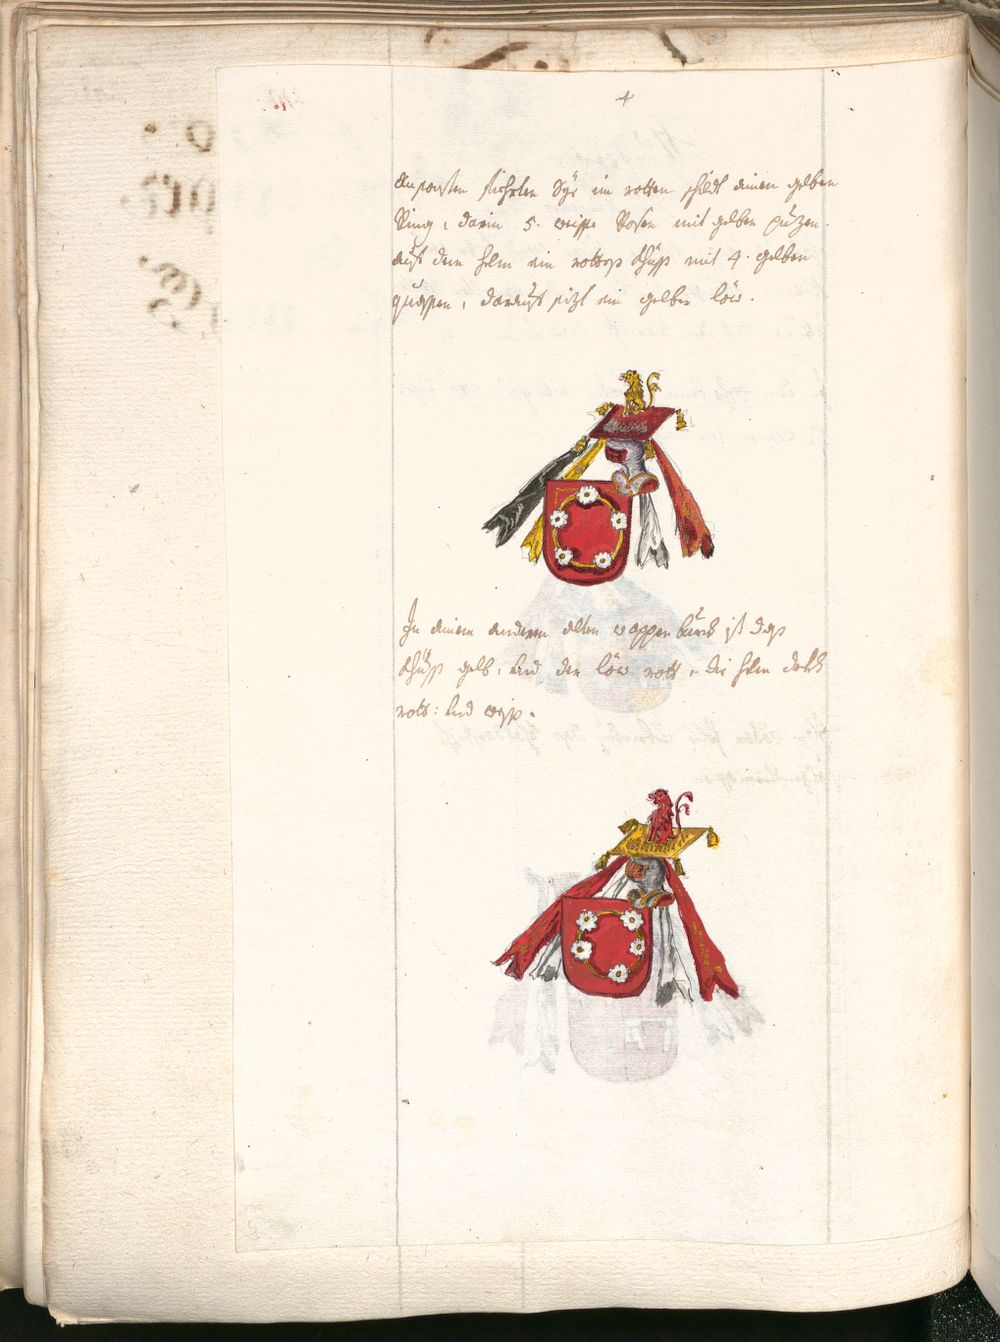 4
Ansonsten führten Sye im rotten schildt einen gelben
Ring, darin 5. weisse Rosen mit gelben puzen.
auf dem helm ein rottes Küss mit 4. gelben
quasten, darauf sizt ein gelber löw.
In einem anderen alten wappenbuech ist das
Küss gelb, und der löw rott, die helm dekh
rott: und weiss.